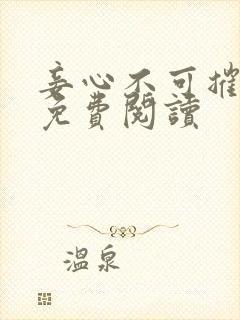 妾心不可摧
免費閱讀
溫泉